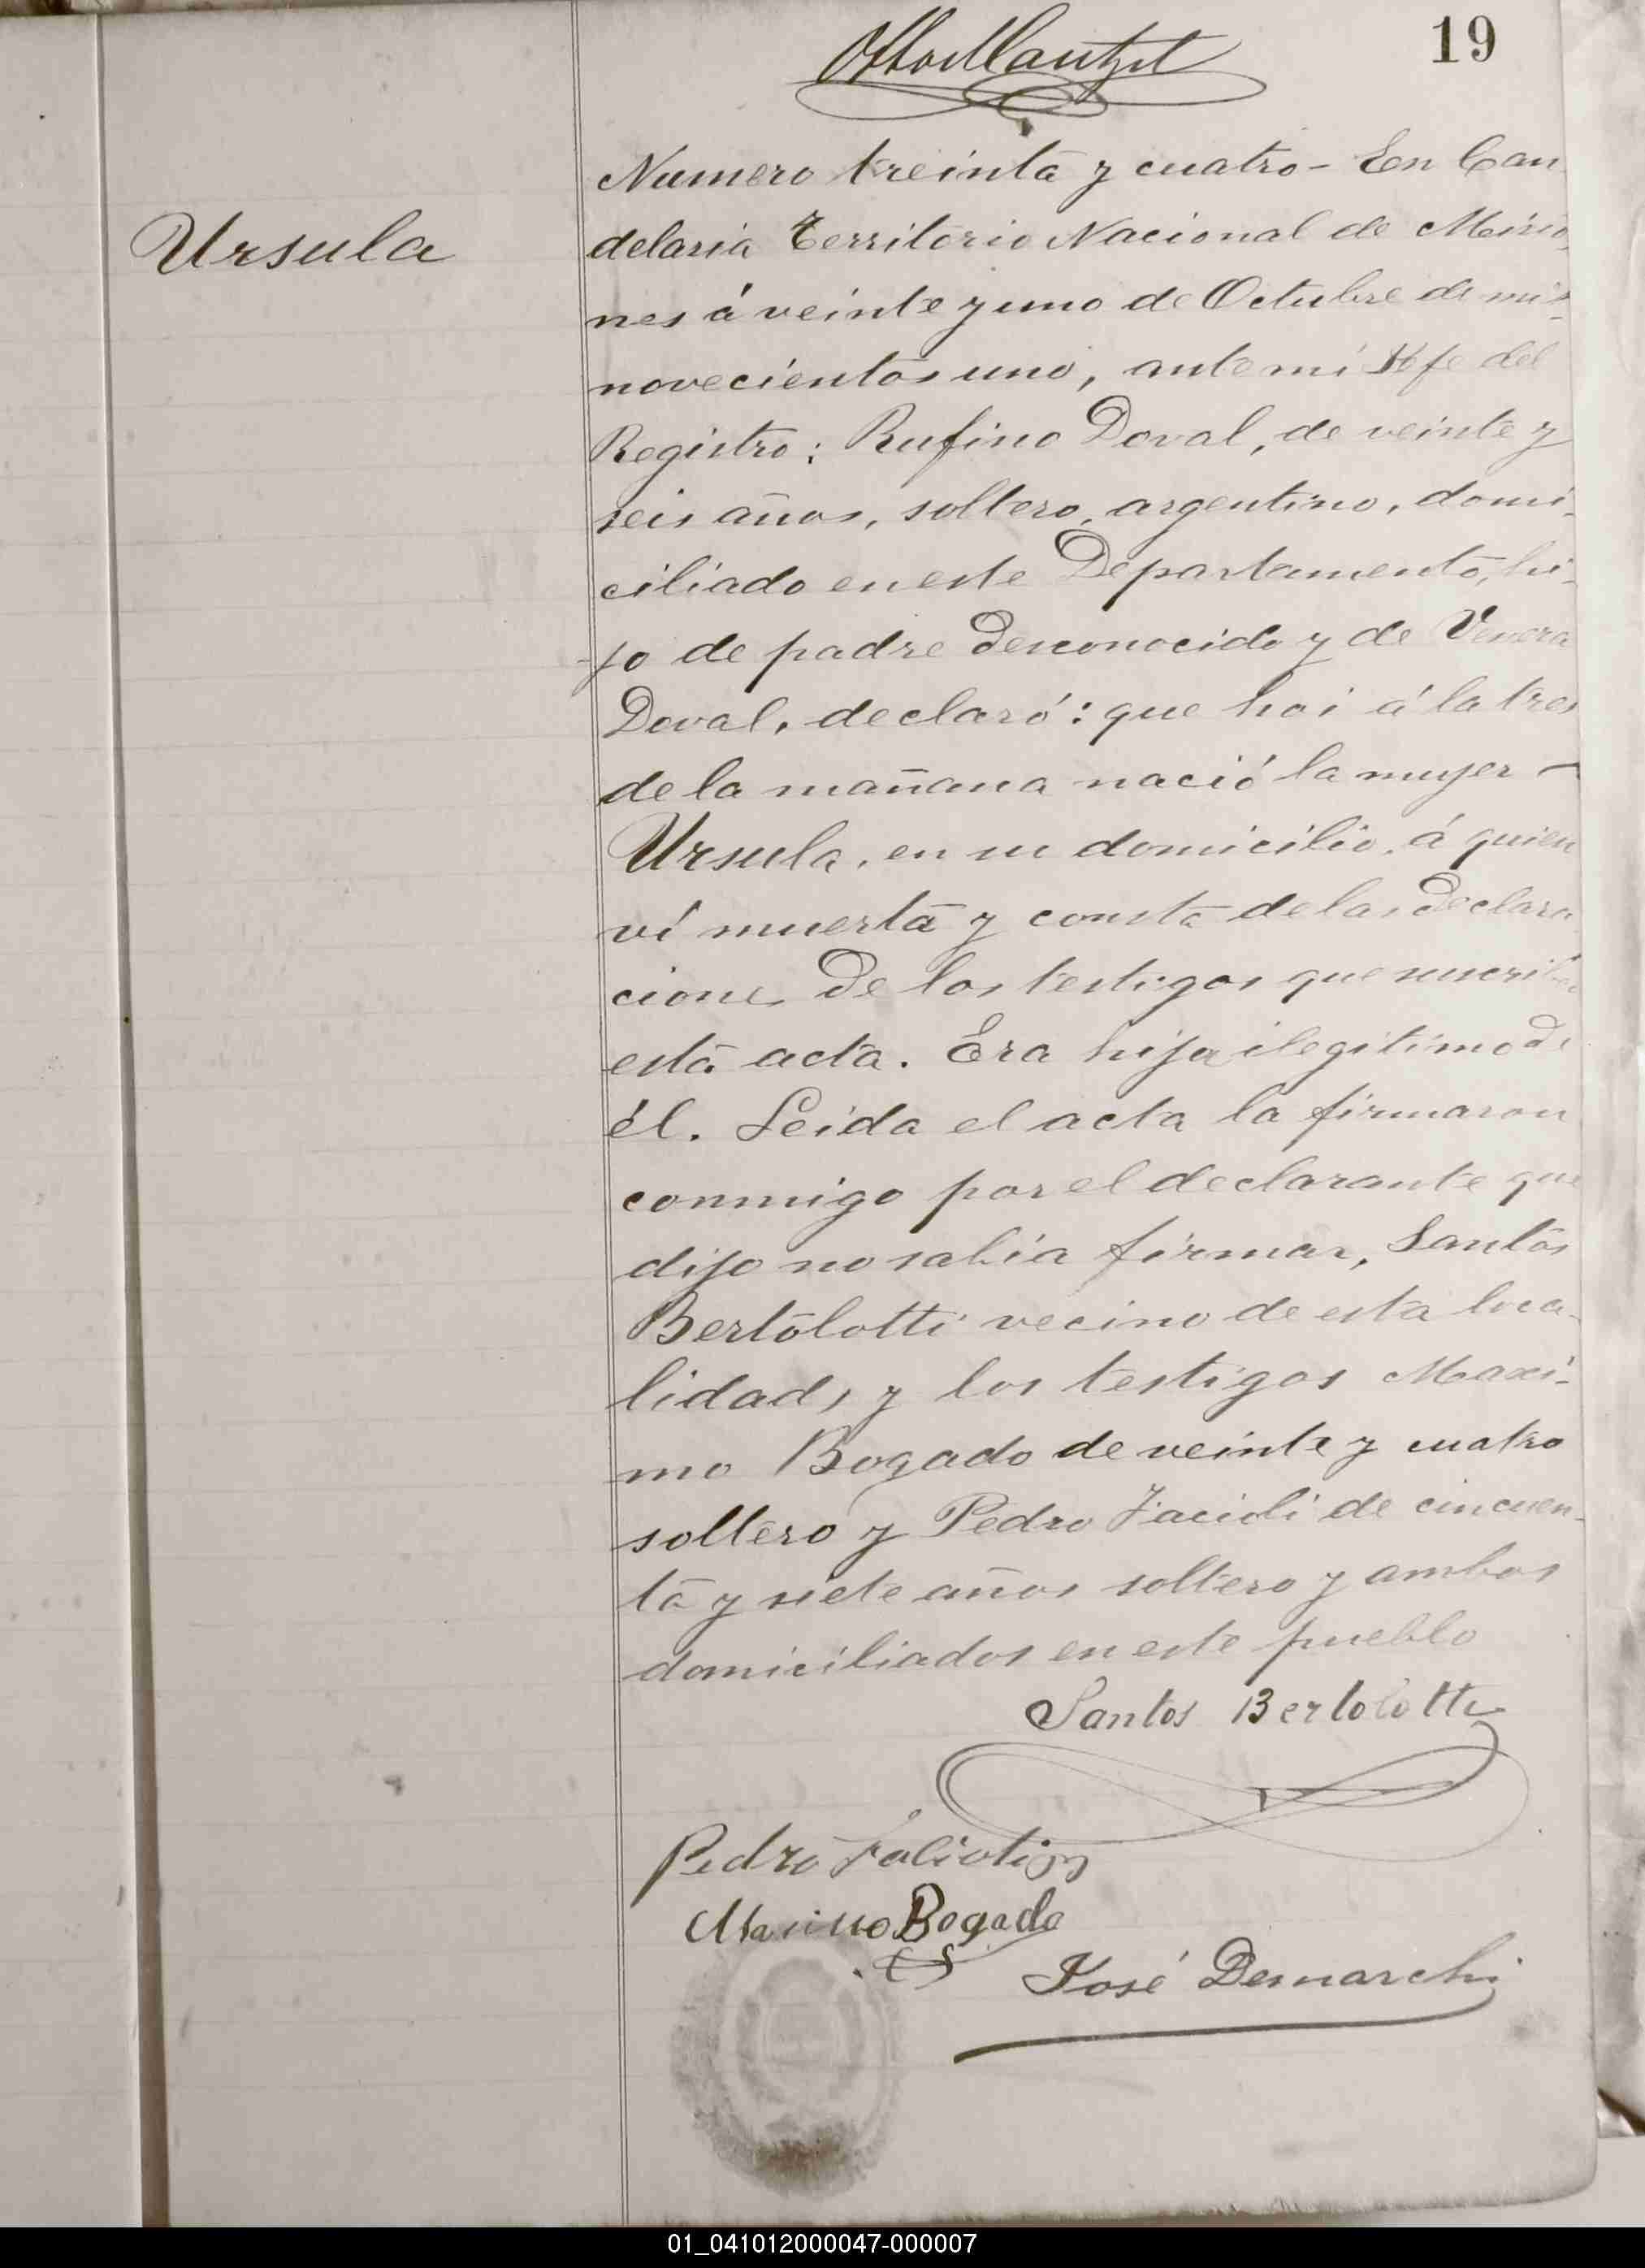 19
Numero treinta y cuatro - En Can
delaria Territorio Nacional de Misio
nes á veinte y uno de Octubre de mil
novecientos uno, ante mi Jefe del
Registro: Rufino Doval, de veinte y
seis años, soltero, argentino, domi-
Ursula
ciliado en este Departamento, hi-
jo de padre desconocido y de Venera
Doval, declaró: que hoi á la tres
de la mañana nació la mujer -
Ursula, en su domicilio, á quien
ví muerta y consta de las declara
ciones de los testigos que suscriben
esta acta. Era hija ilegitima de
él. Leida el acta la firmaron
conmigo por el declarante que
dijo no sabia firmar, Santos
Bertolotti vecino de esta loca-
lidad, y los testigos Maxi-
mo Bogado de veinte y cuatro
soltero y Pedro de cincuen-
ta y siete años soltero y ambos
domiciliados en este pueblo
Santos Bertolotti
Pedro
Maximo Bogado
José Demarchi
01_041012000047-000007